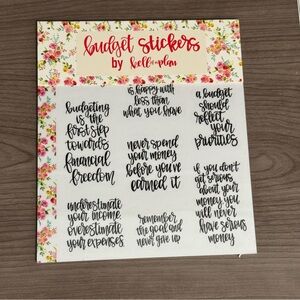 budget stickers
by hello plan
budgeting
is the
first step
towards
financial
freedom
is happy with
less than
what you have
a budget
should
reflect
your
priorities
never spend
your money
before you've
earned it
if you don't
get serious
about your
money you
will never
have serious
money
underestimate
your income.
overestimate
your expenses.
remember
the goal and
never give up